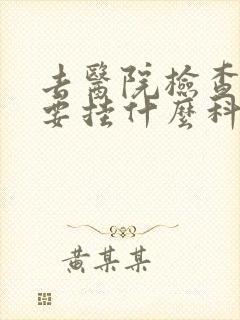 去醫院檢查
要挂什麼科
黄某某